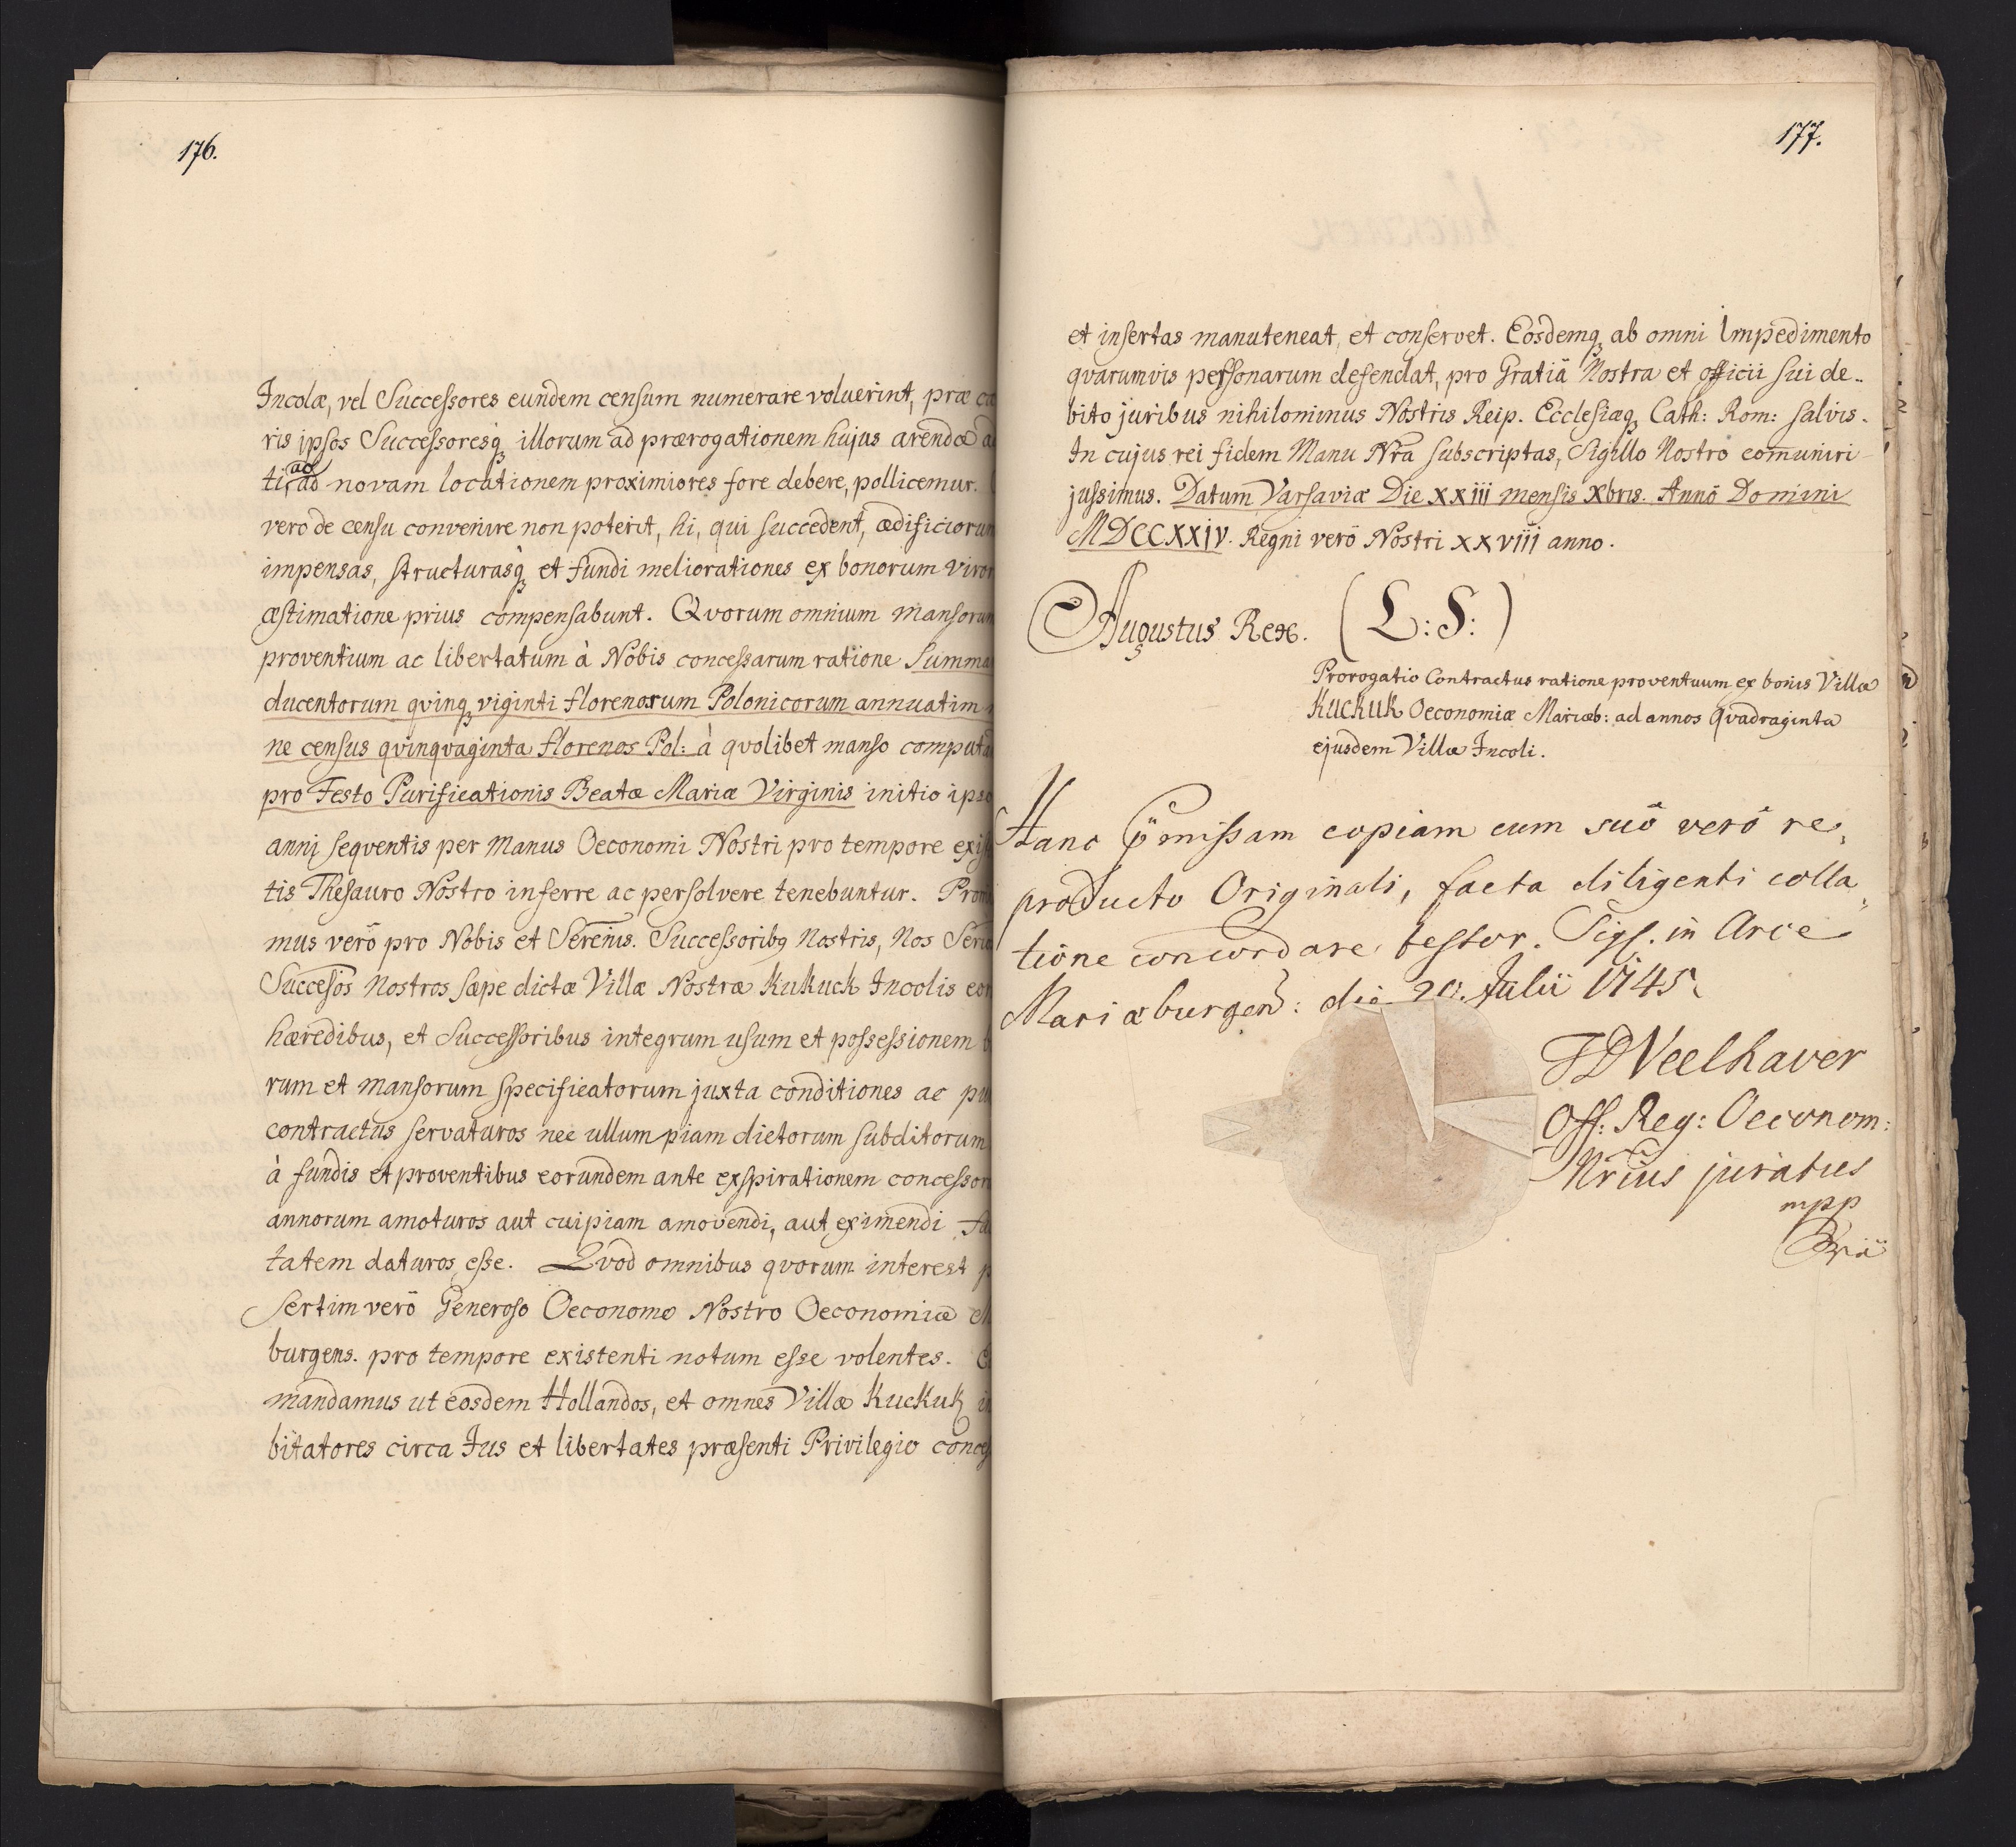 176.
Incolæ, vel Successores eundem censum numerare voluerint, præ
ris ipsos Successoresq illorum ad prærogationem hujus arendæ
ti, ac ad novam locationem proximiores fore debere, pollicemur.
vero de censu convenire non poterit, hi, qui succedent, ædificiorum
impensas, structurasq et fundi meliorationes ex bonorum viror
æstimatione prius compensabunt. Qvorum omnium mansorum
proventium ac libertatum à Nobis concessarum ratione Summa
ducentorum qvinq viginti florenorum Polonicorum annuatim
ne census qvinqvaginta florenos Pol: à qvolibet manso computa
pro Festo Purificationis Beatæ Mariæ Virginis initio ips
anni seqventis per manus Oeconomi Nostri pro tempore exis
tis Thesauro Nostro inferre ac persolvere tenebuntur. Prom
mus verò pro Nobis et Serenis. Successoribq Nostris, Nos Seren
Succesos Nostros sæpe dictæ Villæ Nostræ Kukuck Incolis eor
hæredibus, et Successoribus integrum usum et possessionem
rum et mansorum specificatorum juxta conditiones ac pu
contractus servaturos nec ullum piam dictorum subditorum
à fundis et proventibus eorundem ante exspirationem concessor
annorum amoturos aut cuipiam amovendi, aut eximendi fa
tatem daturos esse. Qvod omnibus qvorum interest p
sertim verò Generoso Oeconomo Nostro Oeconomiæ
burgens. pro tempore existenti notum esse volentes.
mandamus ut eosdem Hollandos, et omnes Villæ Kuckuk in
bitatores circa Jus et libertates præsenti Privilegio conces
177.
et insertas manuteneat, et conservet. Eosdemq ab omni Impedimento
qvarumvis personarum defendat, pro Gratiâ Nostra et officii sui de..
bito juribus nihilominus Nostris Reip. Ecclesiæq Cath: Rom: salvis.
In cujus rei fidem Manu Nra subscriptas, Sigillo Nostro comuniri
jussimus. Datum Varsaviæ Die XXIII mensis Xbris. Annô Domini
MDCCXXIV. Regni verò Nostri XXVIII anno.
Augustus Rex. (L:S:)
Prorogatio Contractus ratione proventuum ex bonis Villæ
Kuckuk Oeconomiæ Mariæb: ad annos qvadraginta
ejusdem Villæ Incoli.
Hanc pmissam copiam cum suô verô re,
producto Originali, facta diligenti colla,
tione concordare testor. Sigs. in Arce
Mariæburgen: die 20. Julii 1745.
Veelhaver
Off: Reg: Oeconom:
Nrius juratus
mpp